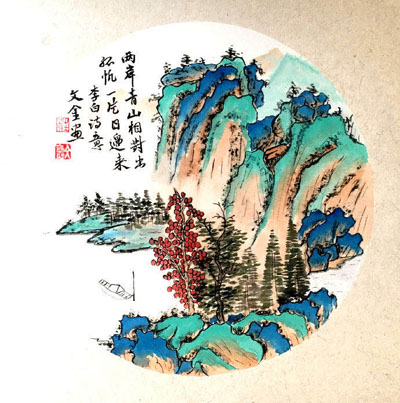 两岸青山相對出
孤帆一片日邊来
李白诗意
文全画